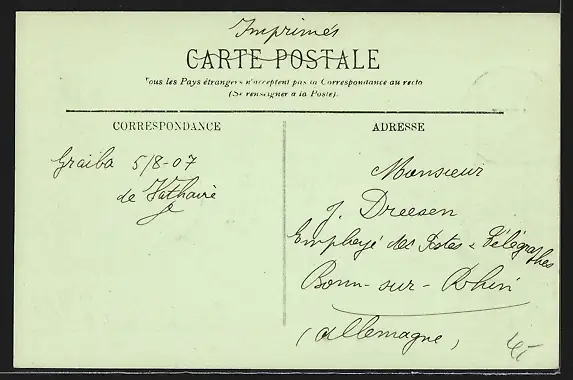 Imprimés
CARTE POSTALE
Tous les Pays étrangers n'acceptent pas la Correspondance au recto
(Se renseigner à la Poste).
CORRESPONDANCE
Graiba 5/8-07
de Vathaire
ADRESSE
Monsieur
J. Dreesen
Employé des Postes & Télégraphes
Bonn-sur-Rhin
(Allemagne)